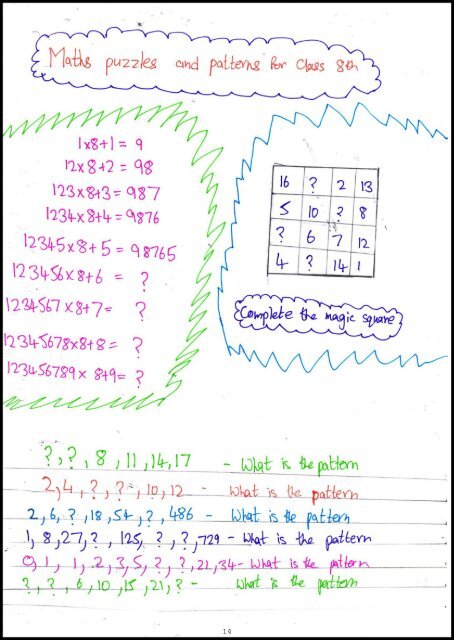 Maths puzzles and patterns for class 8th
1x8+1 = 9
12x8+2 = 98
123x8+3 = 987
1234x8+4 = 9876
12345x8+5 = 98765
123456x8+6 = ?
1234567x8+7= ?
12345678x8+8= ?
123456789x 8+9= ?
16 ? 2 13
5 10 ? 8
? 6 7 12
4 ? 14 1
Complete the magic square
?, ?, 8, 11, 14, 17 - What is the pattern
2, 4, ?, ?, 10, 12 - What is the pattern
2, 6, ?, 18, 54, ?, 486 - What is the pattern
1, 8, 27, ?, 125, ?, ?, 729 - What is the pattern
0, 1, 1, 2, 3, 5, ?, ?, 21, 34 - What is the pattern
?, ?, 6, 10, 15, 21, ? - What is the pattern
14